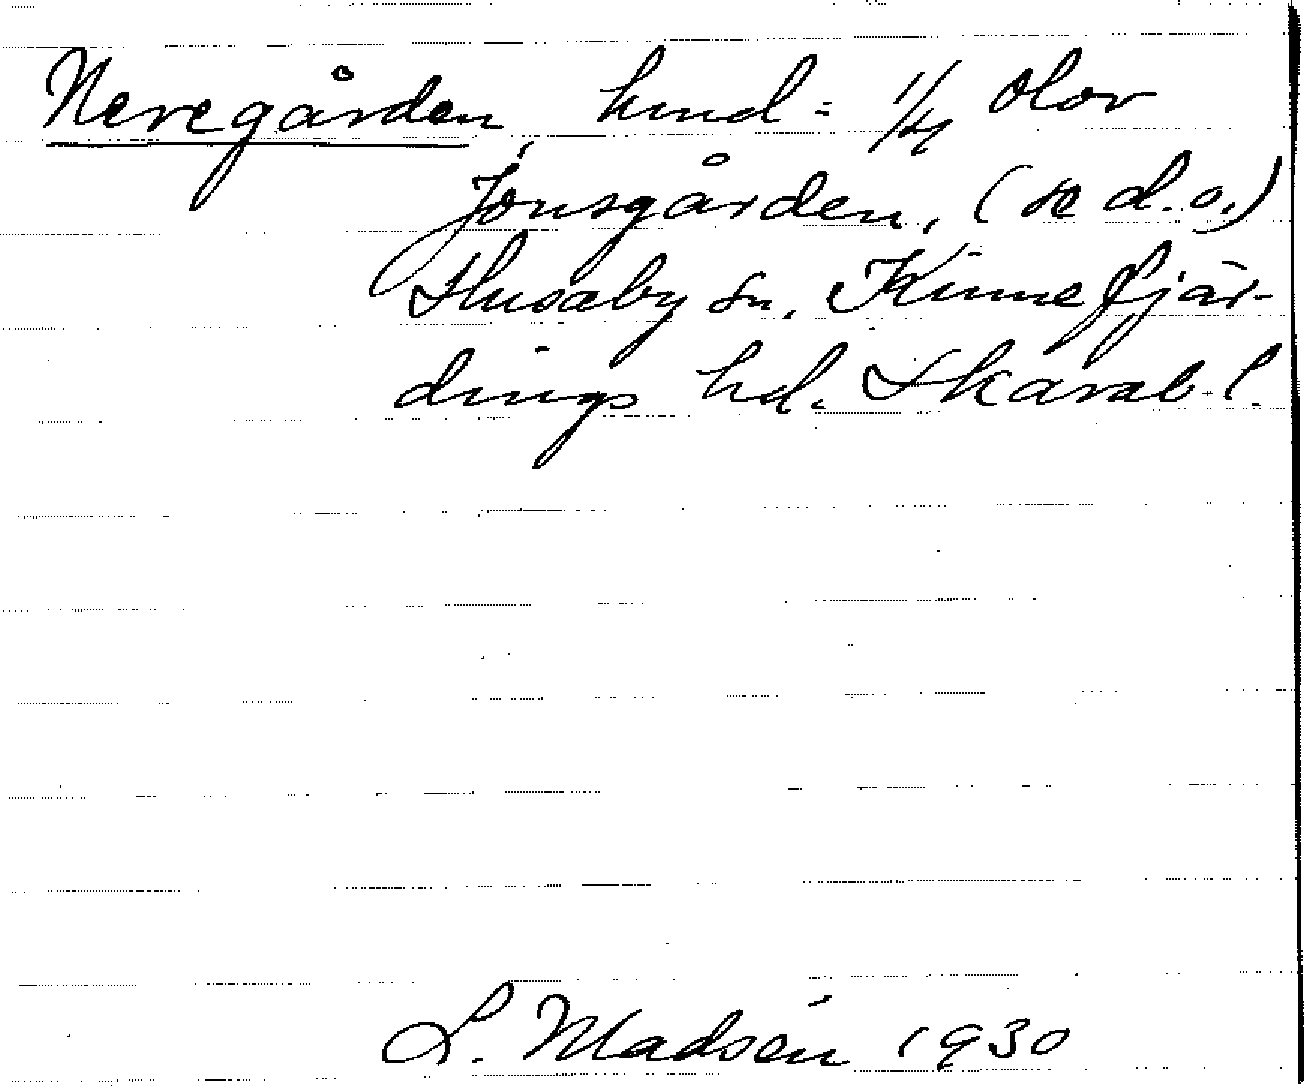 Neregården, hmd = 1/4 Olov
Jonsgården, (se d.o.)
Husaby sn, Kinnefjär-
dings hd. Skarab. l.
L. Madsén 1930